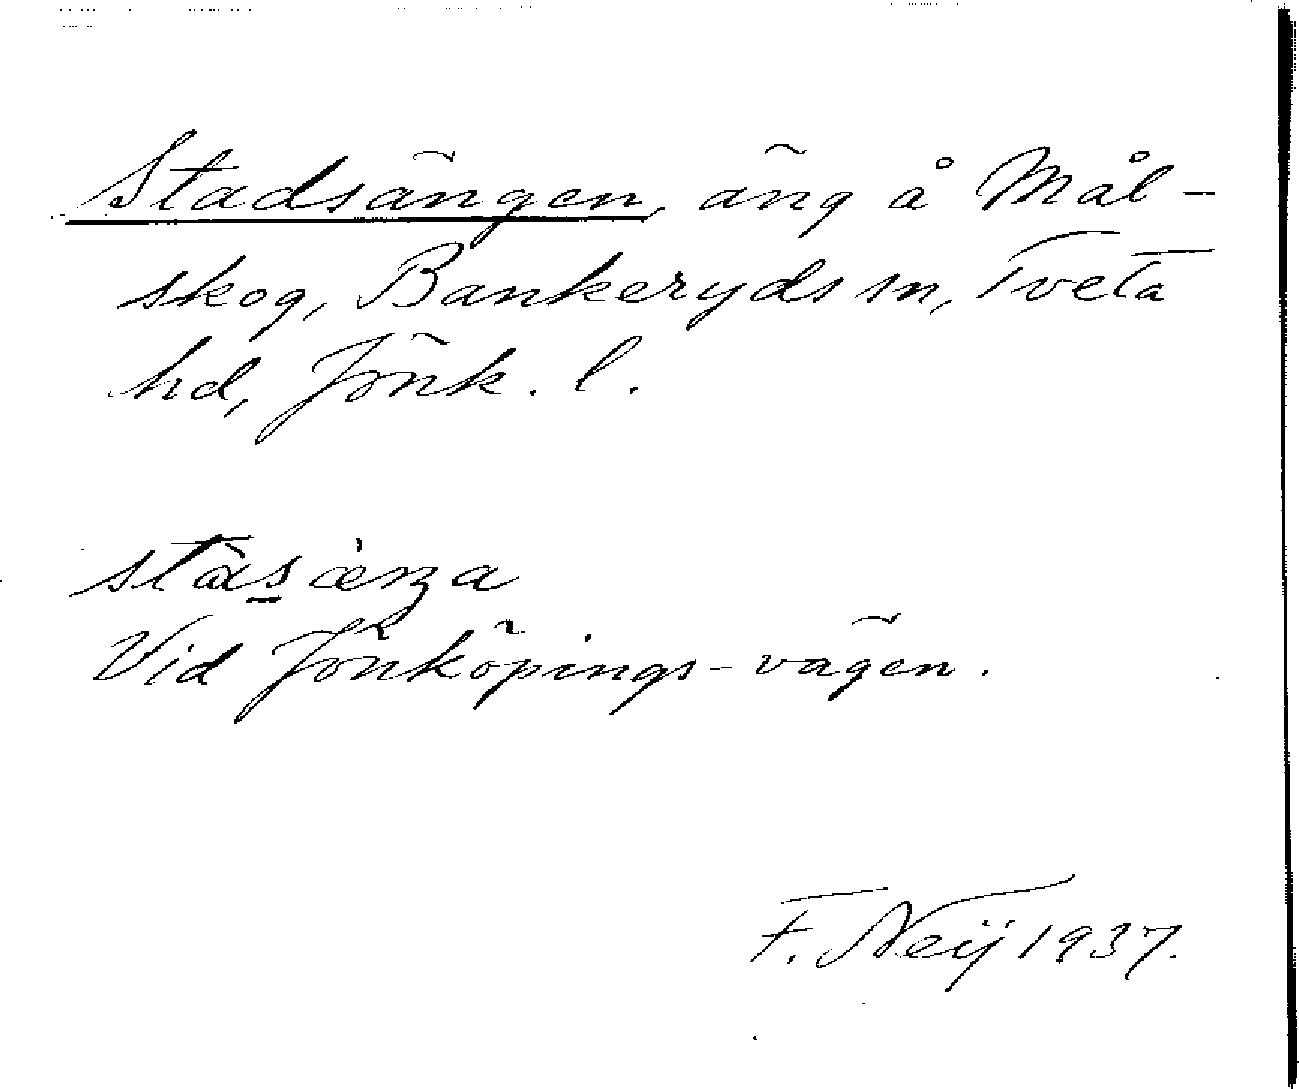 Stadsängen, äng å Mål-
skog, Bankeryds sn, Tveta
hd, Jönk. l.
Vid Jönköpings-vägen.
F. Neij 1937.